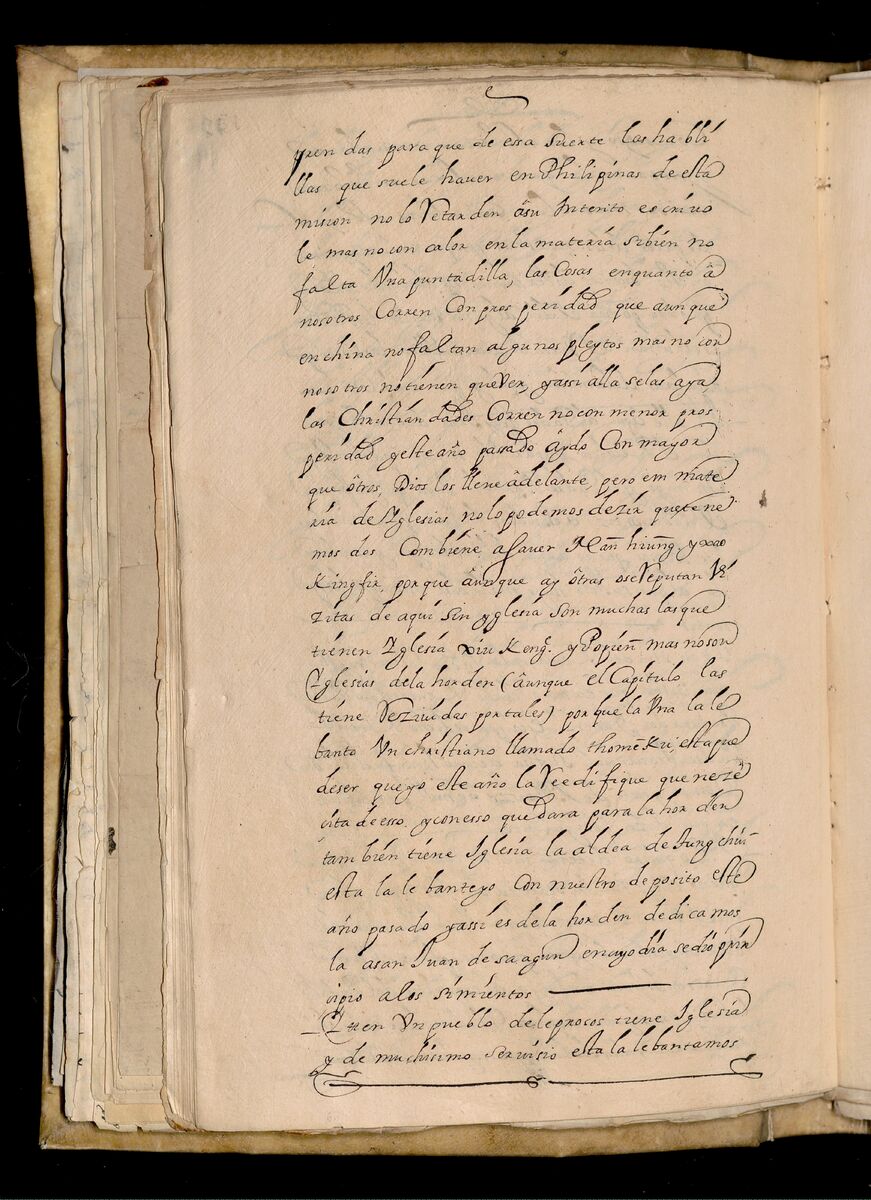 pren das para que de essa suerte las habli
llas que suele hauer en Philipinas de esta
mision no lo Retarden âsu Intento escriuo
le mas no con calor en la materia sibien no
falta Vna puntadilla, las Cosas enquanto â
nosotros Corren Con pros peridad que aunque
en china no faltan algunos pleytos mas no con
nosotros no tienen que Ver, yassi alla se las aya
las Christian dades Corren no con menor pros
peridad y este año pasado âydo Con mayor
que ôtros, Dios los lleue âdelante, pero em mate
ria de Iglesias no lo podemos dezir que tene
mos dos Combiene asauer Nan hiung y xao
King fu, por que âunque ay ôtras o se Reputan Vi
zitas de aqui sin yglesia son muchas las que
tienen Iglesia xiu Keng. y Popien mas no son
Iglesias dela horden (âunque el Capitulo las
tiene Reziuidas por tales) por que la Vna la le
banto Vn christiano llamado thome Ku, esta pue
de ser que yo este año la Reedifique que neze
cita de esso y con esso quedara para la horden
tambien tiene Iglesia la aldea de Pung chui
esta la le bante yo Con nuestro deposito este
año pasado yassi es de la horden dedicamos
la asan Juan de sa agun en cuyo dia se dio prin
cipio a los simientos
Iten Vn pueblo de leprosos tiene Iglesia
y de muchisimo seruisio esta la lebantamos